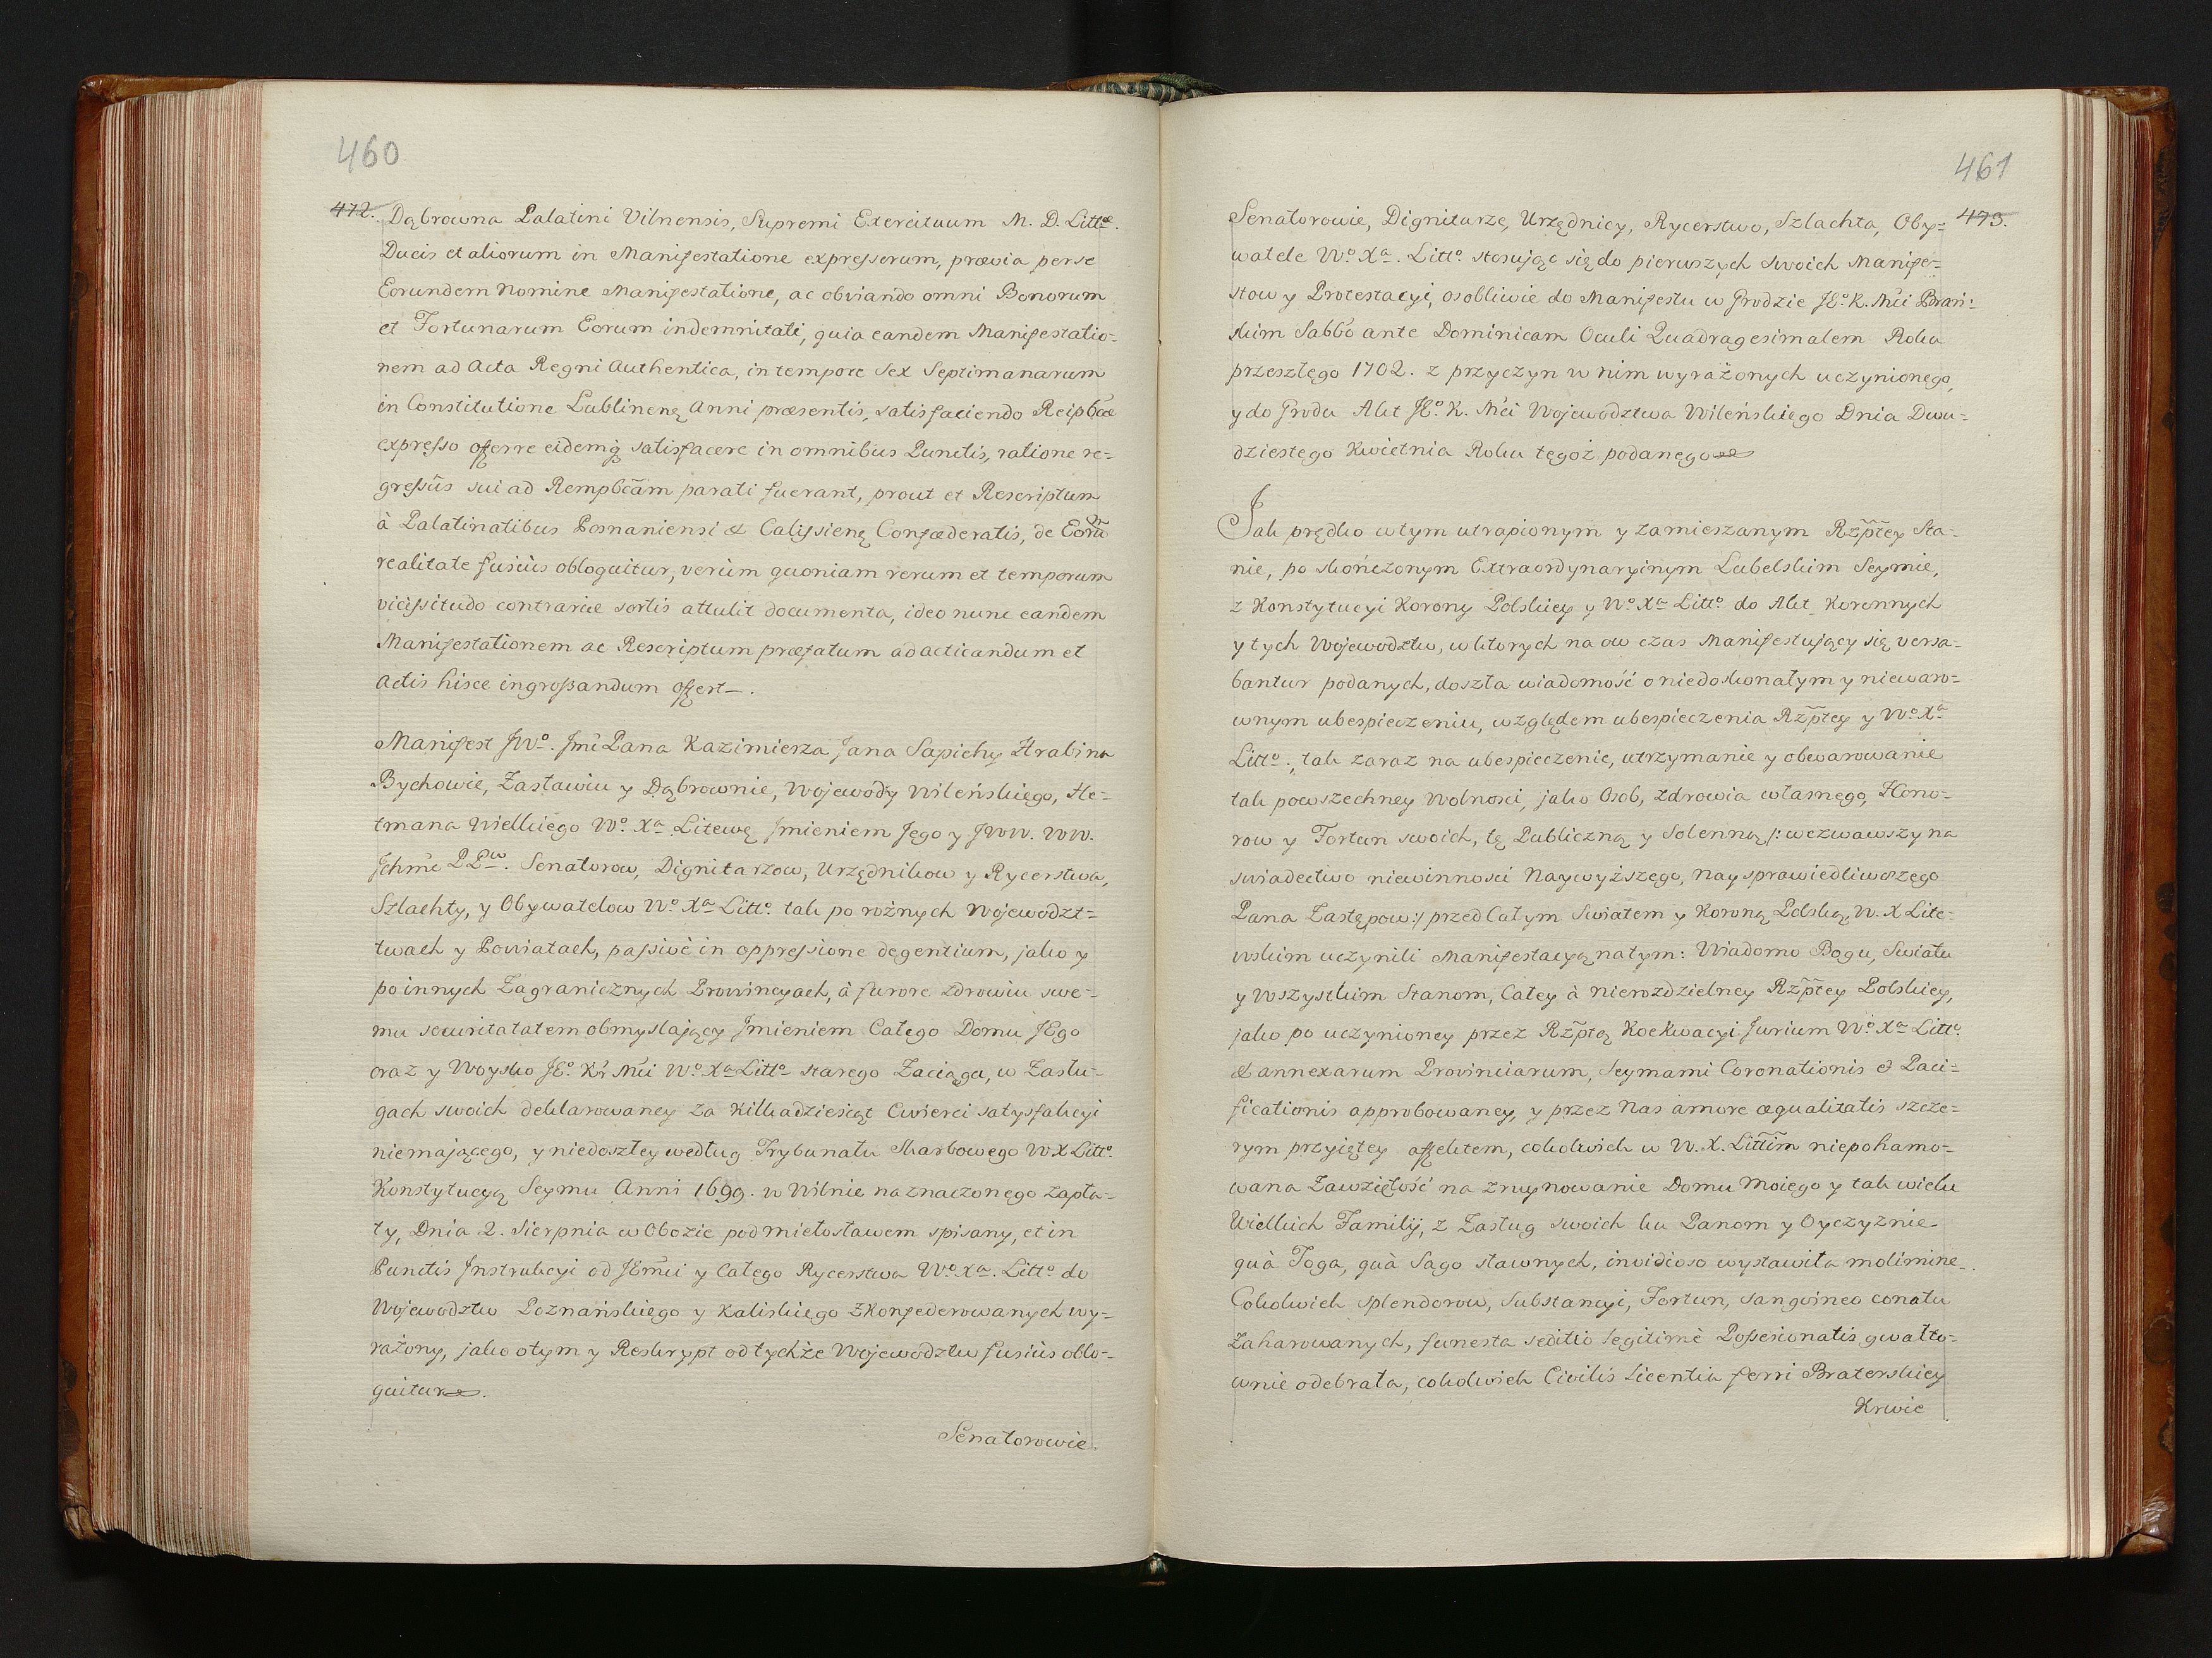 460
472. Dąbrowna Palatini Vilnensis, Supremi Exercituum M. D. Littæ.
Ducis et aliorum in Manifestatione expressorum, prævia per se
Eorundem Nomine Manifestatione, ac obviando omni Bonorum
et Fortunarum Eorum indemnitati, quia eandem Manifestatio-
nem ad Acta Regni Authentica, in tempore Sex Septimanarum
in Constitutione Lublineną Anni præsentis, satisfaciendo Reipbcæ
expresso offerre eidemq̃ satisfacere in omnibus Punctis, ratione re-
gressûs sui ad Rempbcãm parati fuerant, prout et Rescriptum
à Palatinatibus Posnaniensi & Calissieną Confœderatis, de Eorũ
realitate fusiùs obloquitur, verùm quoniam rerum et temporum
vicissitudo contrariæ sortis attulit documenta, ideo nunc eandem
Manifestationem ac Rescriptum præfatum ad acticandum et
Actis hisce ingrossandum offert.
Manifest JWo. Jmci Pana Kazimierza Jana Sapiehy Hrabi na
Bychowie, Zasławiu y Dąbrownie, Wojewody Wileńskiego, He-
tmana Wielkiego Wo. Xa. Litewą Jmieniem Jego y JWW. WW.
Jchmc PPw. Senatorow, Dignitarzow, Urzędnikow y Rycerstwa,
Szlachty, y Obywatelow Wo. Xa Litto. tak po rożnych Wojewodzt-
twach y Powiatach, passivè in oppressione degentium, jako y
po innych Zagranicznych Prowincyach, à furore zdrowiu swe-
mu securitatatem obmyslający Jmieniem Całego Domu JEgo
oraz y Woysko JEo. Kr Mci Wo. Xa Litto starego Zaciągu, w Zasłu-
gach swoich deklarowaney za Kilkadziesiąt Cwierci satysfakcyi
niemającego, y niedoszłey według Trybunału Skarbowego W X Litto.
Konstytucyą Seymu Anni 1699. w Wilnie naznaczonego zapła-
ty, Dnia 2. Sierpnia w Obozie pod Miełosławem spisany, et in
Punctis Jnstrukcyi od JEmci y Całego Rycerstwa Wo. Xa. Litto do
Wojewodztw Poznańskiego y Kaliskiego Zkonfederowanych wy-
rażony, jako o tym y Reskrypt od tychże Wojewodztw fusiùs oblo-
quitur.
Senatorowie
461
Senatorowie, Dignitarze, Urzędnicy, Rycerstwo, Szlachta, Oby- 473.
watele Wo. Xa. Litto. stosując się do pierwszych swoich Manife-
stow y Protestacyi, osobliwie do Manifestu w Grodzie JEo. K. Mci Brań-
skim Sabbõ ante Dominicam Oculi Quadragesimalem Roku
przeszłego 1702. z przyczyn w nim wyrażonych uczynionego,
y do Grodu Akt JEo. K. Mci Wojewodztwa Wileńskiego Dnia Dwu-
dziestego Kwietnia Roku tegoż podanego
Jak prędko w tym utrapionym y zamieszanym Rzptey Sta-
nie, po skończonym Extraordynaryinym Lubelskim Seymie,
z Konstytucyi Korony Polskiey y Wo. Xa Litto. do Akt Korennych
y tych Wojewodztw, w ktorych na ow czas Manifestujący się versa-
bantur podanych, doszła wiadomość o niedoskonałym y niewaro-
wnym ubespieczeniu, względem ubespieczenia Rzptey y Wo. Xa
Litto., tak zaraz na ubespieczenie, utrzymanie y obwarowanie
tak powszechney Wolnosci, jako Osob, zdrowia własnego, Hono-
row y Fortun swoich, tę Publiczną y Solenną /: wezwawszy na
swiadectwo niewinnosci Naywyższego, Naysprawiedliwszego
Pana Zastępow :/ przed Całym Swiatem y Koroną Polską, W. X Lite-
wskim uczynili Manifestacyą na tym: Wiadomo Bogu, Swiatu
y Wszystkim Stanom, Całey à nierozdzielney Rzptey Polskiey,
jako po uczynioney przez Rzptą Koekwacyi Jurium Wo. Xa Litto.
& annexarum Provinciarum, Seymami Coronationis & Paci-
ficationis approbowaney, y przez Nas amore æqualitatis szcze-
rym przyiętey affektem, cokolwiek w W. X. Littim niepohamo-
wana Zawziętość na zruynowanie Domu Moiego y tak wielu
Wielkich Familij, z Zasług swoich ku Panom y Oyczyznie
quà Toga, quà Sago sławnych, invidioso wystawiła molimine.
Cokolwiek splendorow, Substancyi, Fortun, sanguineo conatu
Zaharowanych, funesta seditio legitimè Possesionatis gwałto-
wnie odebrała, cokolwiek Civilis Licentia ferri Braterskiey
Krwie